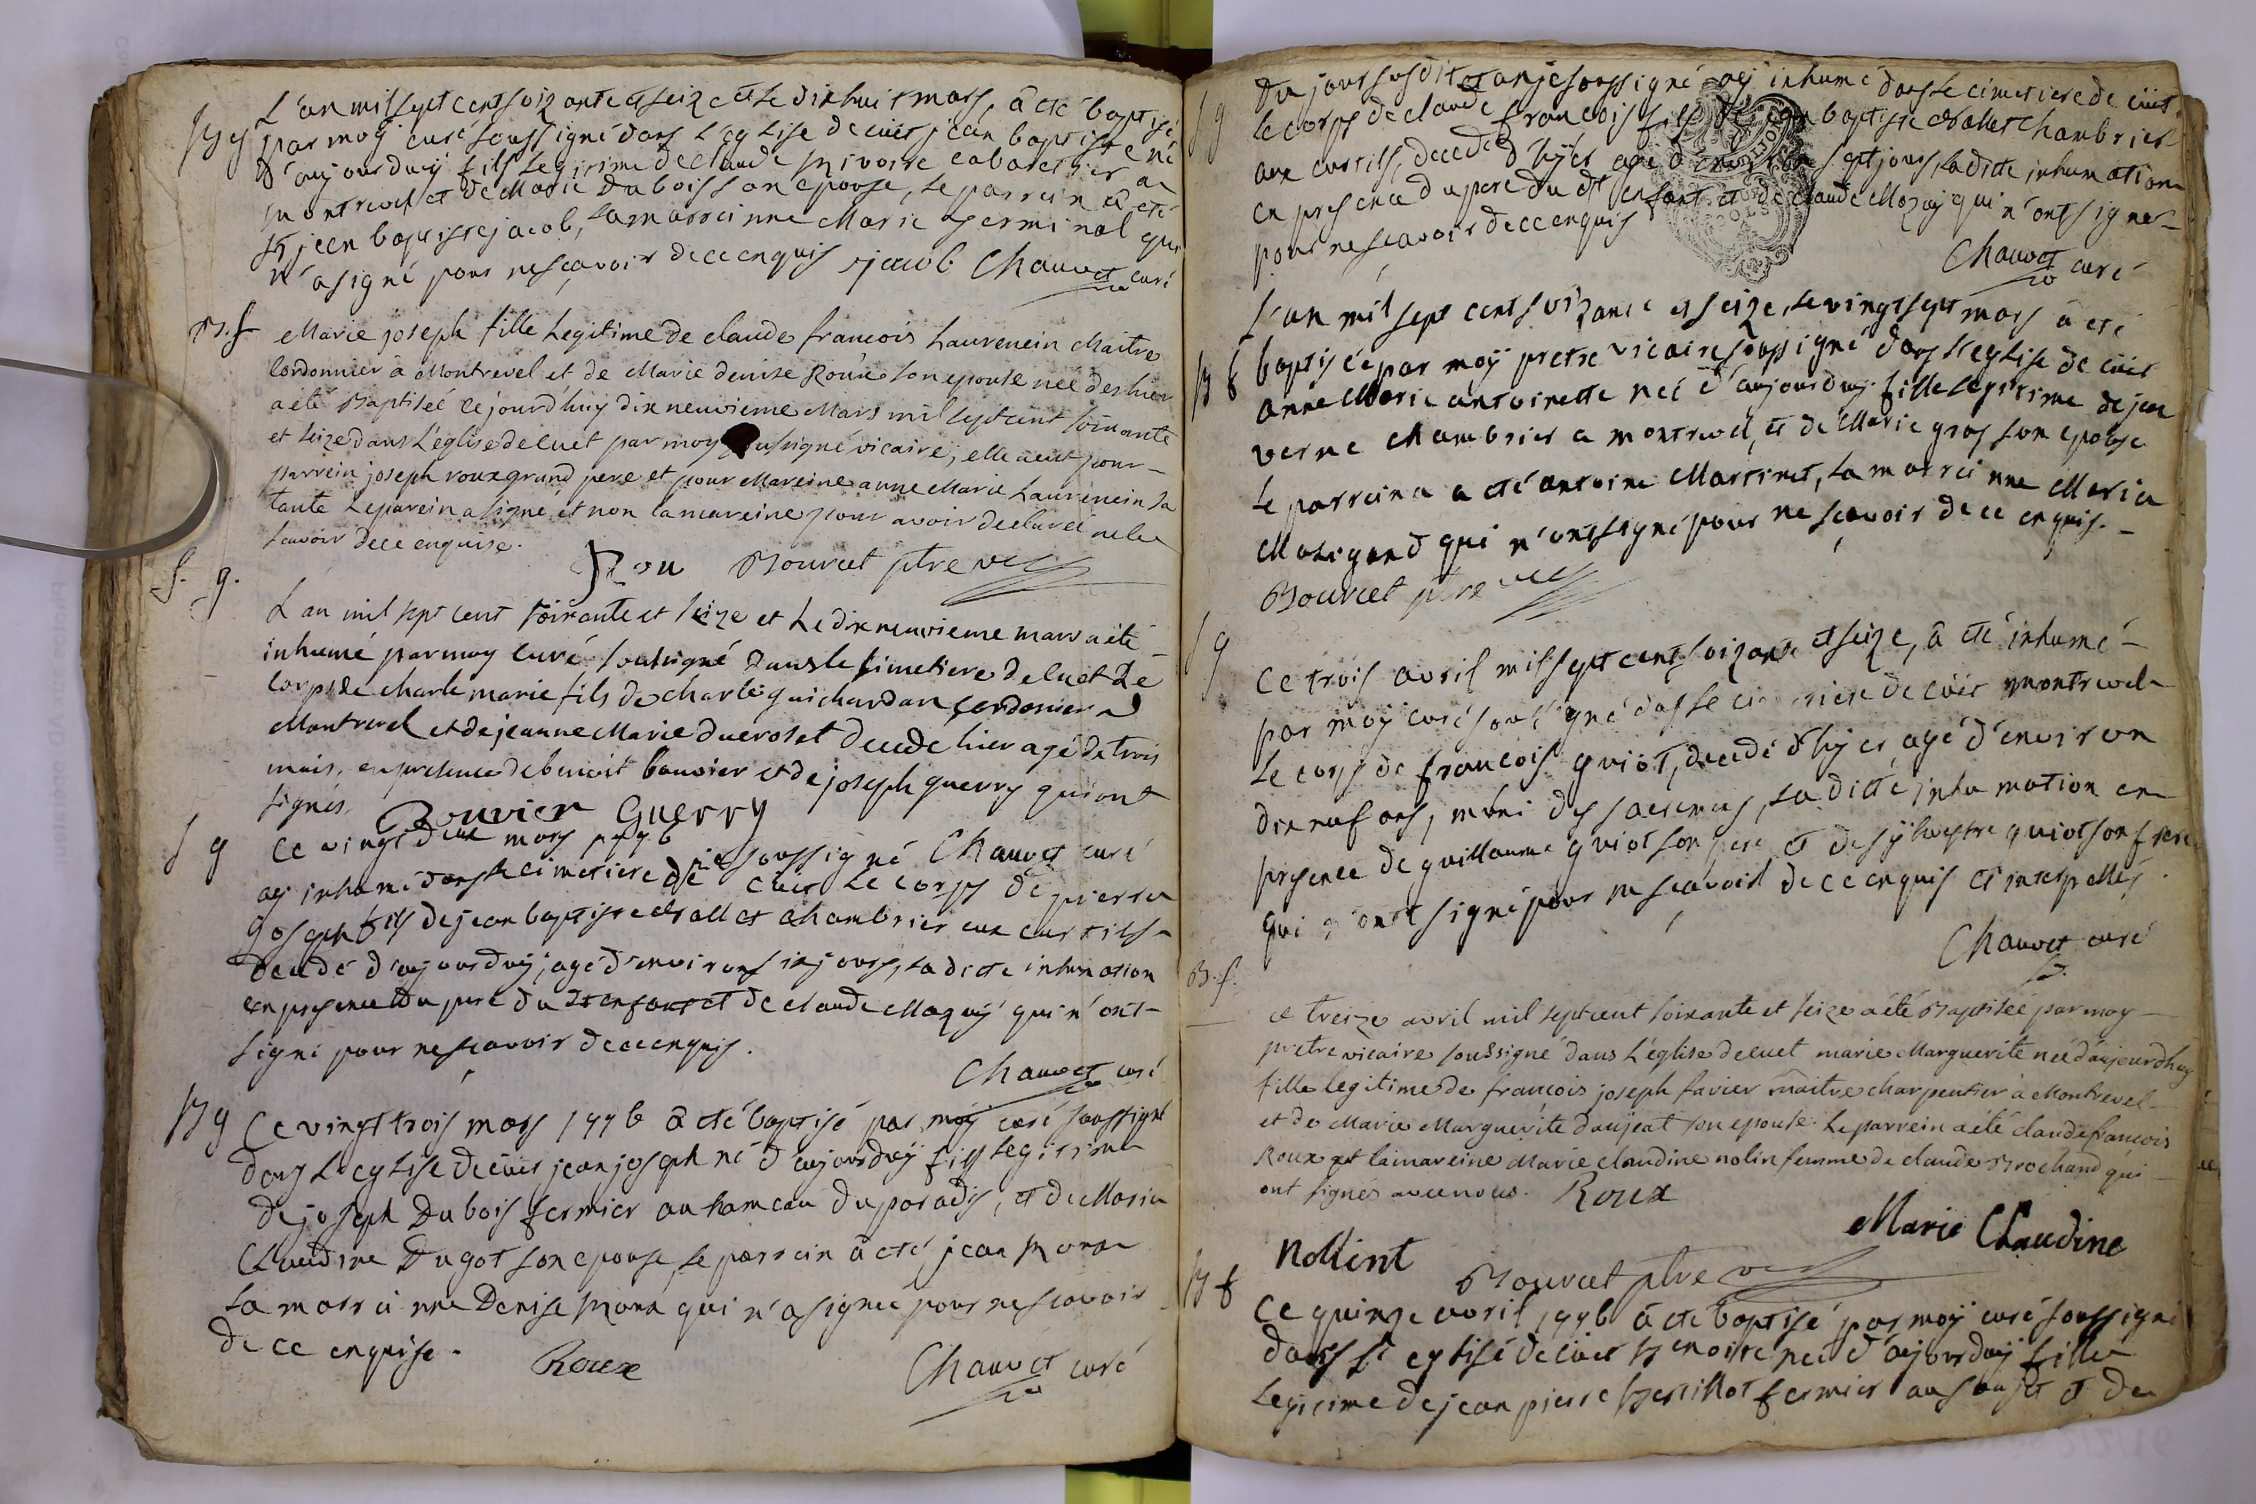 B g
L'an mil sept cent soixante et seize et le dix huit mars, a eté baptisé
par moy curé soussigné dans l'eglise de cuet jean baptiste né
d'aujourduÿ fils legitime de claude Mivoire cabaretier a
montrevel et de Marie Dubois son epouse, le parrein a eté
jeen baptiste jacob, la marreinne Marie Germinal qui
n'a signé pour ne scavoir de ce enquis jacob Chauvet curé
B. f
Marie joseph fille Legitime de claude francois Laurencin Maitre
Cordonnier à Montrevel et de Marie denise Roux son epouse née des hier
a été Baptisée ce jourd'huy dix neuvieme Mars mil sept cent soixante
et seize dans L'eglise de cuet par moy soussigné vicaire, elle a eut pour
parrein joseph roux grand pere et pour Mareine anne Marie Laurencin sa
tante Le parein a signé et non la mareine pour avoir declaré ne le
scavoir de ce enquise.
Rou Bourcet ptre vic
S. g.
L an mil sept cent soixante et seize et Le dix neuvieme mars a été
inhumé par moy curé soussigné dans le simetiere de cuet Le
corps de charle marie fils de charle guichardan cordonier a
Montrevel et de jeanne Marie ducroset decede hier agé de trois
mois, en presence de benoit bouvier et de joseph guerry qui ont
signés, Bouvier Guerry
S g
Ce vingt deux mars 1776 je soussigné Chauvet curé
aÿ inhumé dans le cimetiere de cuet Le corps de pierre
joseph fils de jean baptiste chambrier aux curtils
decedé d'aujourduÿ, agé d'environ six jours, la dicte inhumation
en presence du pere du dt enfant et de claude Mazuÿ qui n'ont
signé pour ne scavoir de ce enquis.
Chauvet curé
B g
Ce vingt trois mars 1776 a eté baptisé par moÿ curé soussigné
dans L'eglise de cuet jean joseph né d'aujourduÿ fils legitime
de joseph Dubois fermier au hameau du paradis, et de Marie
Claudine Dugot son epouse, le parrein a eté jean
la marreinne Denise qui n'a signée pour ne scavoir
de ce enquise. Roux Chauvet curé
S g
Du jour susdit et an je soussigné aÿ inhumé dans le cimetiere de cuet
le corps de claude francois fils de jean baptiste chambrier
aux curtils, decedé d'hÿer agé d'environ sept jours, la dicte inhumation
en presence du pere du dt enfant et de claude Mazuÿ qui n'ont signés
pour ne scavoir de ce enquis
Chauvet curé
B f
L'an mil sept cent soixante et seize, le vingt sept mars a eté
baptisée par moÿ pretre vicaire soussigné dans l'eglise de cuet
anne Marie antoinette née d'aujourduÿ fille legitime de jean
verne chambrier a montrevel, et de Marie gros son epouse
le parrein a eté antoine Martinet, la marreinne Marie
qui n'ont signé pour ne scavoir de ce enquis.
Bourcet ptre vic
S g
Ce trois avril mil sept cent soixante et seize, a eté inhumé
par moÿ curé soussigné dans le cimetiere de cuet montrevel
Le corps de francois guiot, decedé d'hÿer, agé d'environ
dix neuf ans, muni des sacremens, la dicte inhumation en
presence de guillaume guiot son pere et de sÿlvestre guiot son frere
qui n'ont signé pour ne scavoir de ce enquis et interpellés.
Chauvet curé
B. f.
Ce treize avril mil sept cent soixante et seize a été Baptisée par moy
pretre vicaire soussigné dans L'église de cuet marie Marguerite née d'aujourdhuy
fille legitime de françois joseph favier maitre charpentier à Montrevel
et de Marie Marguerite daujeat son epouse. Le parrein a été claude francois
Roux et la mareine Marie claudine nolin femme de claude Brochand qui
ont signés avec nous. Roux
Marie Claudine
Nollint
Bourcet ptre vic
B f
Ce quinze avril 1776 a eté baptisé par moÿ curé soussigné
dans l'eglise de cuet Benoite née d'aujourduÿ fille
Legitime de jean pierre fermier au et de